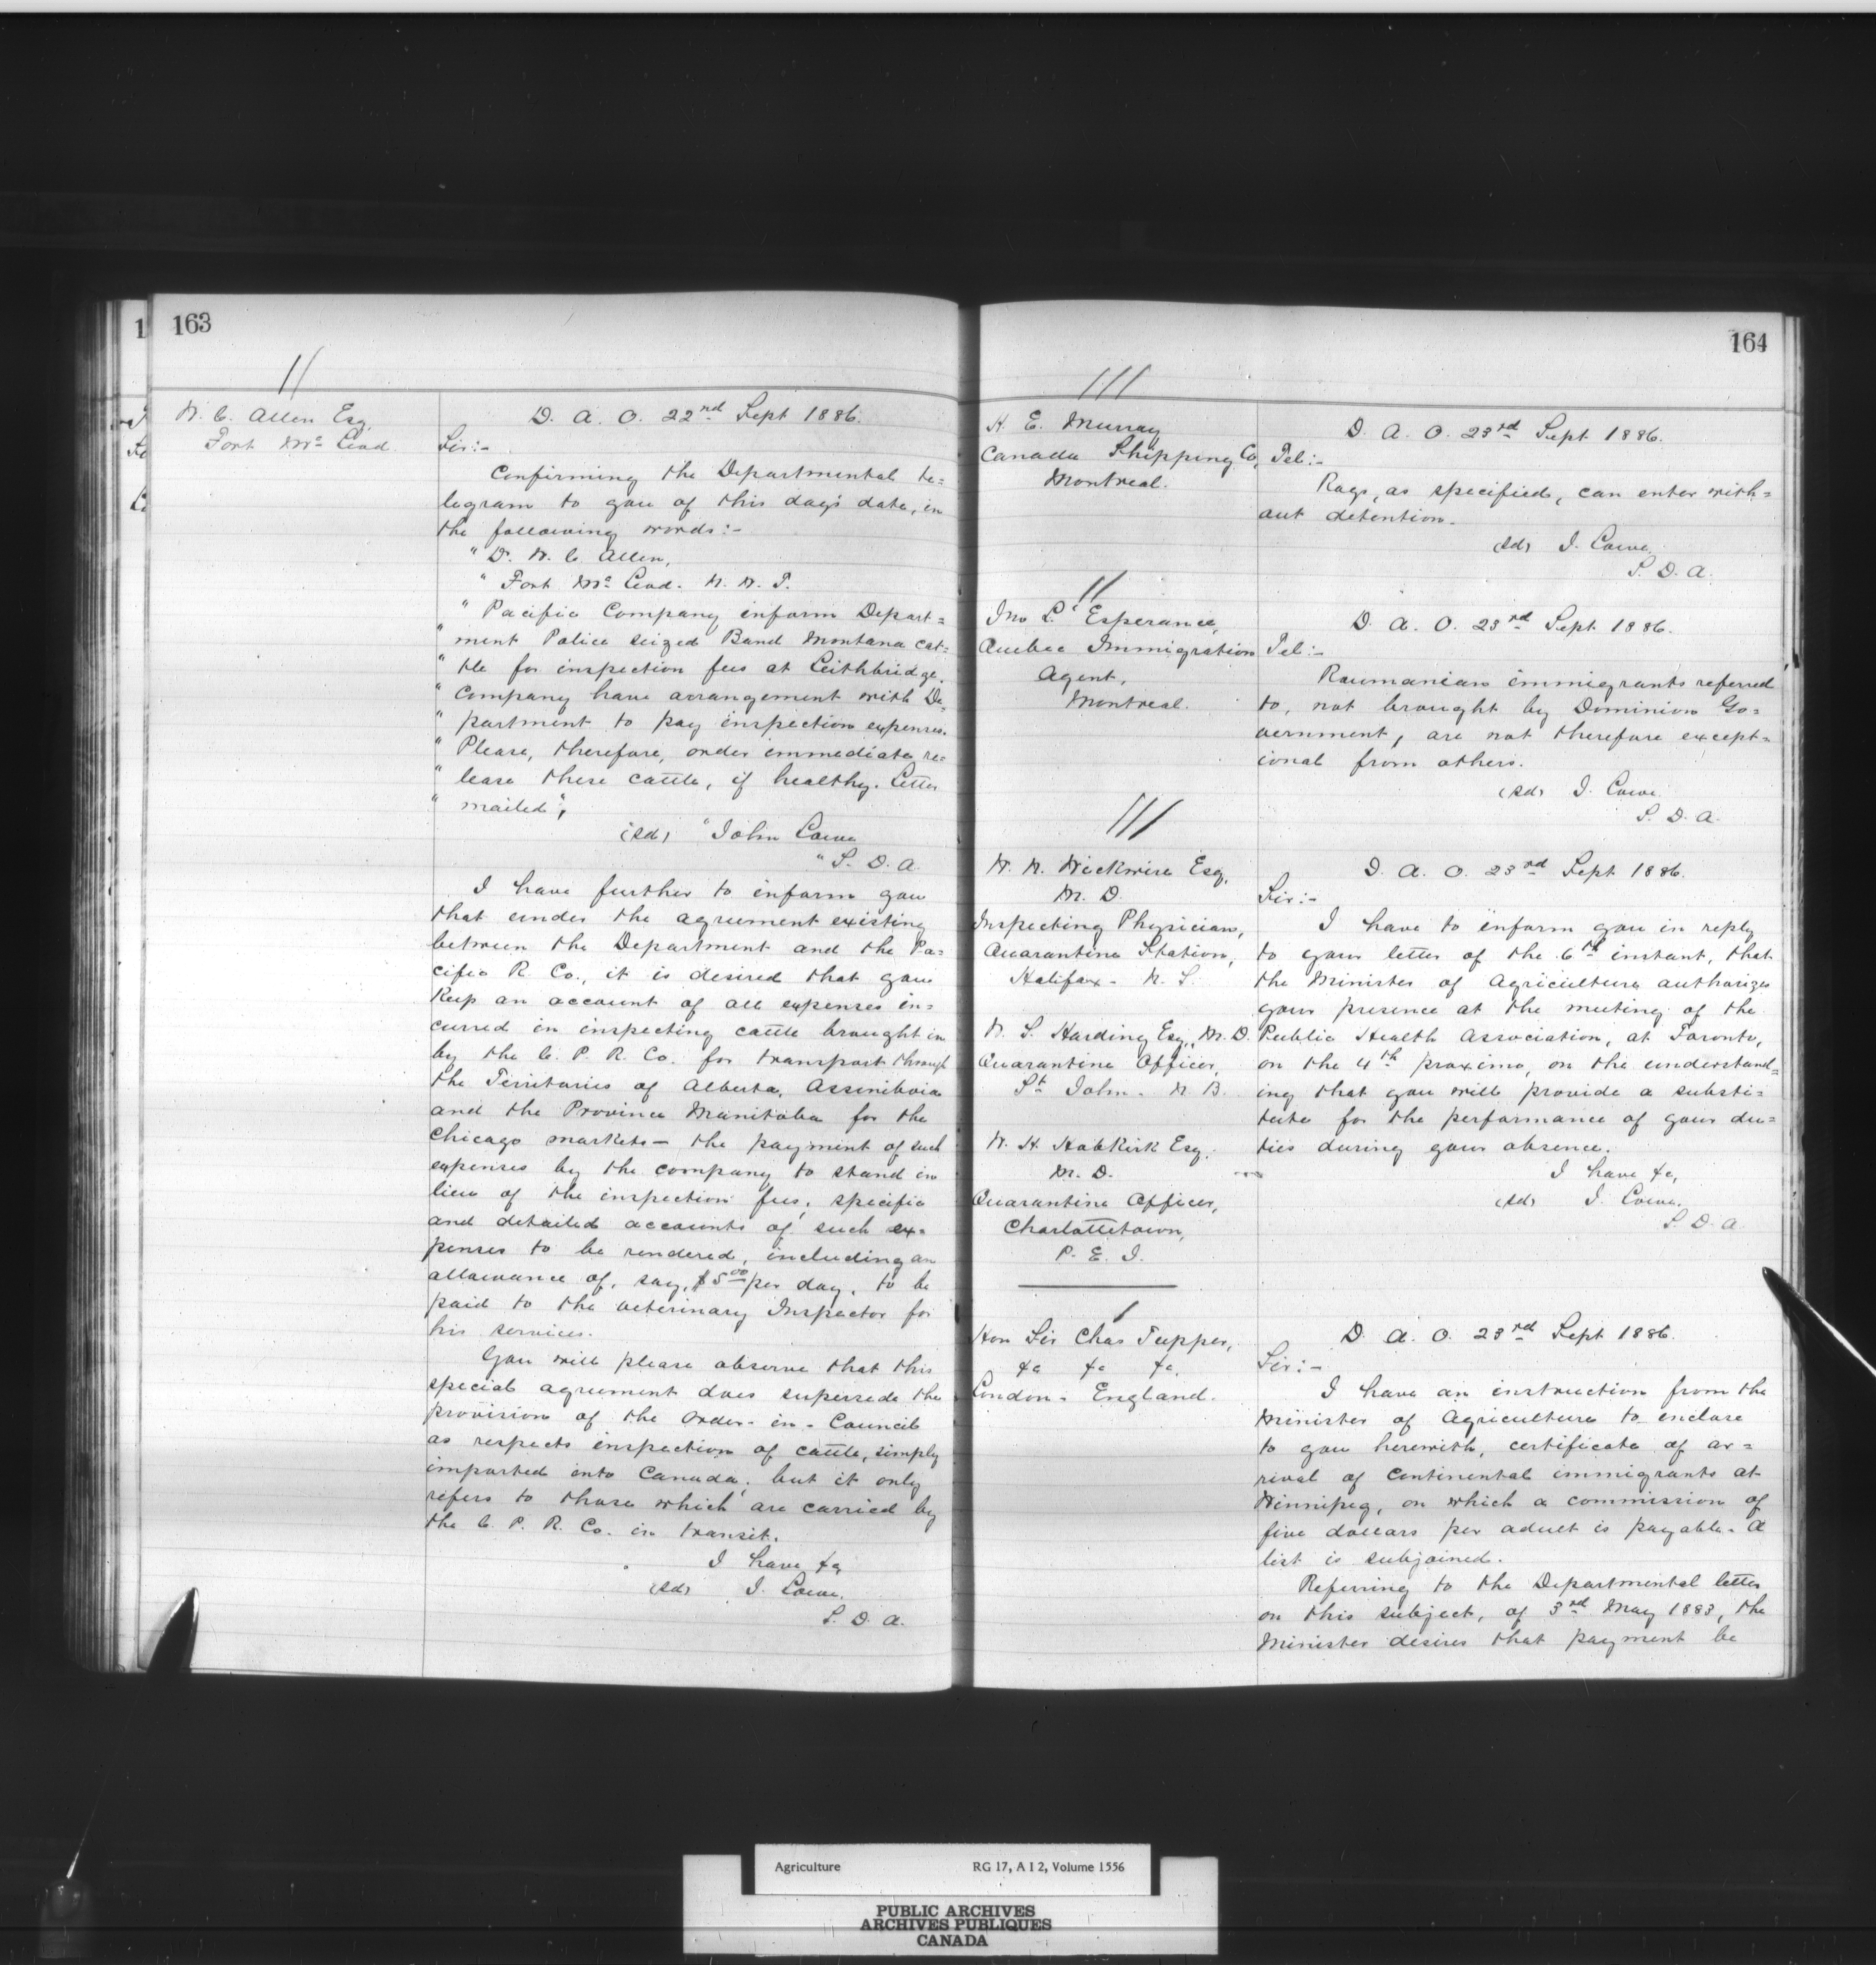 163
11
W. C. Allen Esq,
Fort Mc Leod.
D. A. O. 22nd Sept 1886.
Sir:-
Confirming the Departmental te=
legram to you of this day's date, in
the following words:-
"D. W. C. Allen,
"Fort Mc Leod. N. W. T.
"Pacific Company inform Depart=
"ment Police seized Band Montana cat=
"tle for inspection fees at Leithbridge.
"Company have arrangement with De=
"partment to pay inspection expenses.
"Please, therefore, order immediate re=
"lease these cattle, if healthy. Letter
"mailed",
(sd) "John Lowe
"S. D. A.
I have further to inform you
that under the agreement existing
between the Department and the Pa=
cific R. Co., it is desired that you
keep an account of all expenses in=
curred in inspecting cattle brought in
by the C. P. R. Co. for transport through
the Territories of Alberta, Assiniboia
and the Province Manitoba for the
Chicago markets - the payment of such
expenses by the company to stand in
lieu of the inspection fees, specific
and detailed accounts of such ex=
penses to be rendered, including an
allowance of, say, $5.00 per day, to be
paid to the veterinary Inspector for
his services.
You will please observe that this
special agreement does supersede the
provision of the Order-in-Council
as respects inspection of cattle, simply
imported into Canada; but it only
refers to those which are carried by
the C. P. R. Co. in transit.
I have &c,
(sd) J. Lowe.
S. D. A.
164
111
H. E. Murray
Canada Shipping Co,
Montreal.
D. A. O. 23rd Sept 1886.
Tel:-
Rags, as specified, can enter with=
out detention.
(sd) J. Lowe
S. D. A.
11
Jno L'Esperance,
Quebec Immigration
Agent,
Montreal.
D. A. O. 23rd Sept 1886.
Tel:-
Roumanian immigrants referred
to, not brought by Dominion Go=
vernment, are not therefore except=
ional from others.
(sd) J. Lowe
S. D. A.
111
W. N. Wickwire Esq,
M. D.
Inspecting Physician,
Quarantine Station,
Halifax - N. S.
W. S. Harding Esq., M. D.
Quarantine Officer,
St John - N. B.
W. H. Hobkirk Esq.
M. D.
Quarantine Officer,
Charlottetown,
P. E. I.
D. A. O. 23rd Sept 1886.
Sir:-
I have to inform you in reply
to your letter of the 6th instant, that
the Minister of Agriculture authorizes
your presence at the meeting of the
Public Health Association, at Toronto,
on the 4th proximo, on the understand=
ing that you will provide a substi=
tute for the performance of your du=
ties during your absence.
I have &c,
(sd) J. Lowe.
S. D. A.
1
Hon Sir Chas Tupper,
&c &c &c,
London - England.
D. A. O. 23rd Sept 1886.
Sir:-
I have an instruction from the
Minister of Agriculture to enclose
to you herewith, certificate of ar=
rival of Continental immigrants at
Winnipeg, on which a commission of
five dollars per adult is payable. A
list is subjoined.
Referring to the Departmental letter
on this subject, of 3rd May 1883, the
Minister desires that payment be
Agriculture RG 17, A I 2, Volume 1556
PUBLIC ARCHIVES
ARCHIVES PUBLIQUES
CANADA